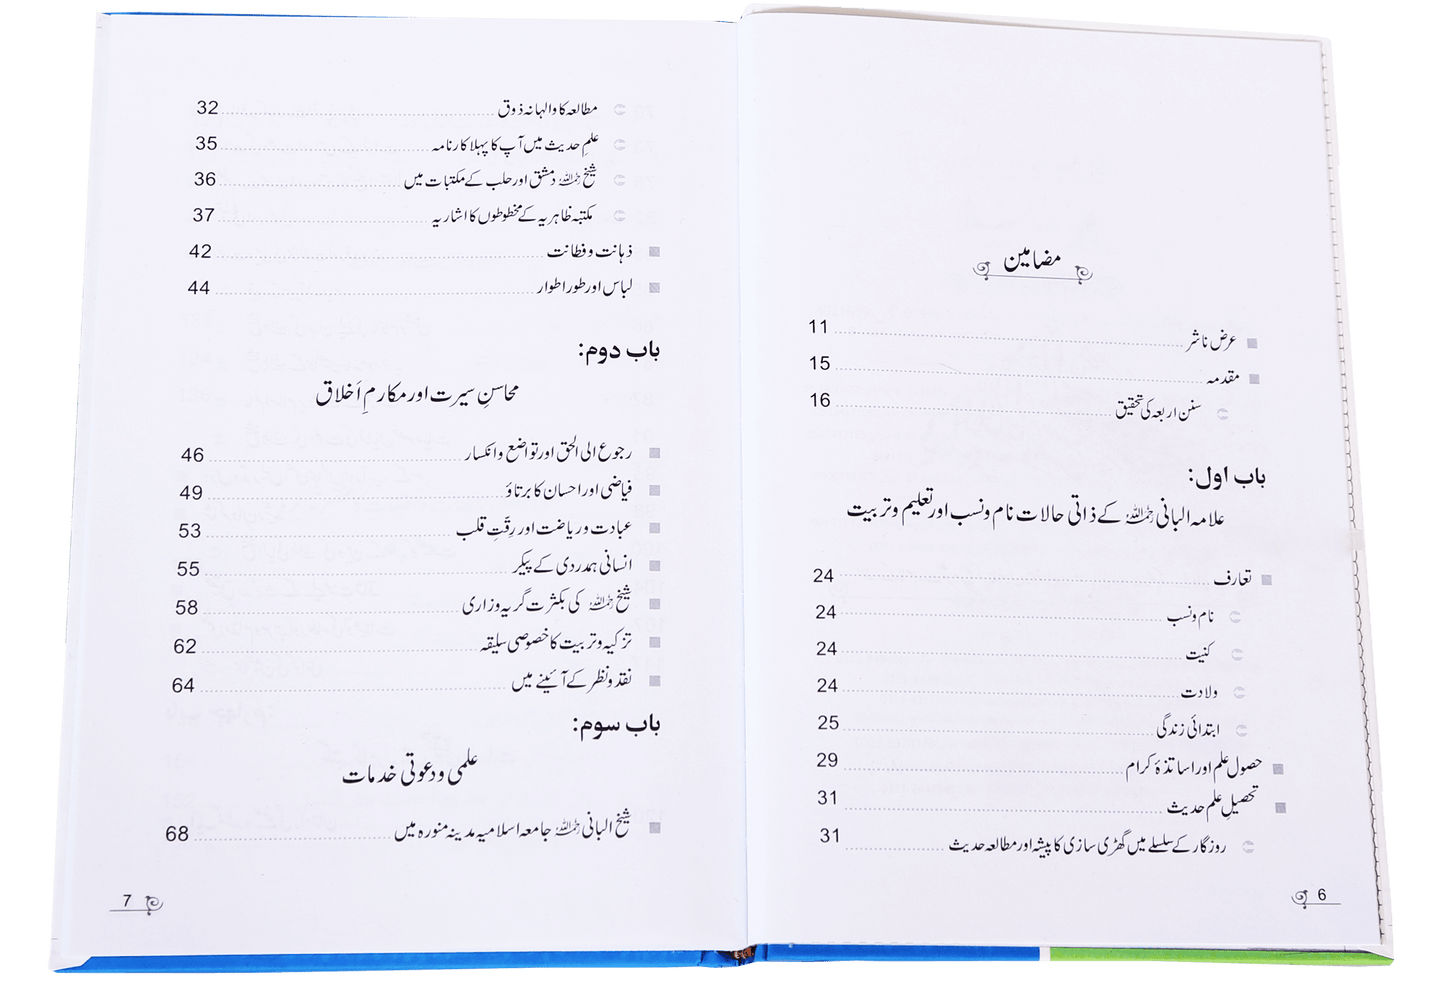 مضامین
عرض ناشر 11
مقدمہ 15
سنن اربعہ کی تحقیق 16
باب اول:
علامہ البانی رحمہ اللہ کے ذاتی حالات نام و نسب اور تعلیم و تربیت
تعارف 24
نام و نسب 24
کنیت 24
ولادت 24
ابتدائی زندگی 25
حصول علم اور اساتذۂ کرام 29
تحصیلِ علم حدیث 31
روزگار کے سلسلے میں گھڑی سازی کا پیشہ اور مطالعہ حدیث 31
6
مطالعہ کا والہانہ ذوق 32
علمِ حدیث میں آپ کا پہلا کارنامہ 35
شیخ رحمہ اللہ دمشق اور حلب کے مکتبات میں 36
مکتبہ ظاہریہ کے مخطوطوں کا اشاریہ 37
ذہانت و فطانت 42
لباس اور طور اطوار 44
باب دوم:
محاسنِ سیرت اور مکارمِ اَخلاق
رجوع الی الحق اور تواضع و انکسار 46
فیاضی اور احسان کا برتاؤ 49
عبادت و ریاضت اور رِقَّتِ قلب 53
انسانی ہمدردی کے پیکر 55
شیخ رحمہ اللہ کی بکثرت گریہ و زاری 58
تزکیہ و تربیت کا خصوصی سلیقہ 62
نقد و نظر کے آئینے میں 64
باب سوم:
علمی و دعوتی خدمات
شیخ البانی رحمہ اللہ جامعہ اسلامیہ مدینہ منورہ میں 68
7